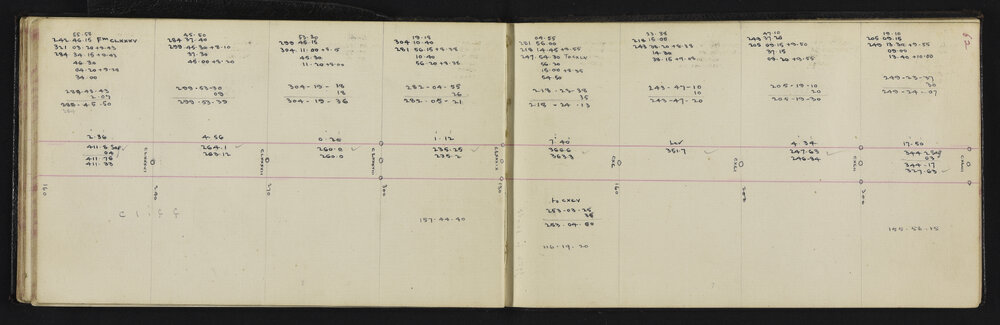 55.55
242 46.15 Fm CLXXXV
321 03.20 +9.43
284 34.15 +9.43
46.30
04.20 +9.20
34.00
2.07
288.45.50
2.36
411.8
411.75
411.33
150
45.50
284 37.40
299 45.30 +8.10
37.30
45.00 +8.20
299-53-30
09
299-53-39
4.56
264.1
263.12
53.30
299 45.15
304.11.00 +8.5
45.30
11.20 +8.00
304-19-18
18
304-19-36
0.20
260.0
260.0
19.18
304 10.40
281 56.15 +8.35
10.40
56.20 +8.35
282-04-55
26
282-05-21
1.12
235.25
235.2
300
157-44-40
04.55
281 56.00
218 14.45 +8.55
247 54.30 To CXCV
56.20
15.00 +8.35
54.50
218-23-38
35
218-24-13
7.40
366.6
363.3
CXC
To CXCV
253-03-25
35
253-04-00
116.19.20
23.35
218 15.05
243 38.20 +8.35
14.30
38.15 +9.03
243-47-10
10
243-47-20
Lev
351.7
CXCI
47.10
243 37.20
205 09.15 +9.50
37.15
09.20 +9.55
205-19-10
20
205-19-30
4.34
247.63
246.84
19.10
205 09.15
249 13.30 +9.55
09.00
13.40 +10.00
249-23-37
30
249-24-07
17.50
344.2
03
344.17
327.63
155-56-15